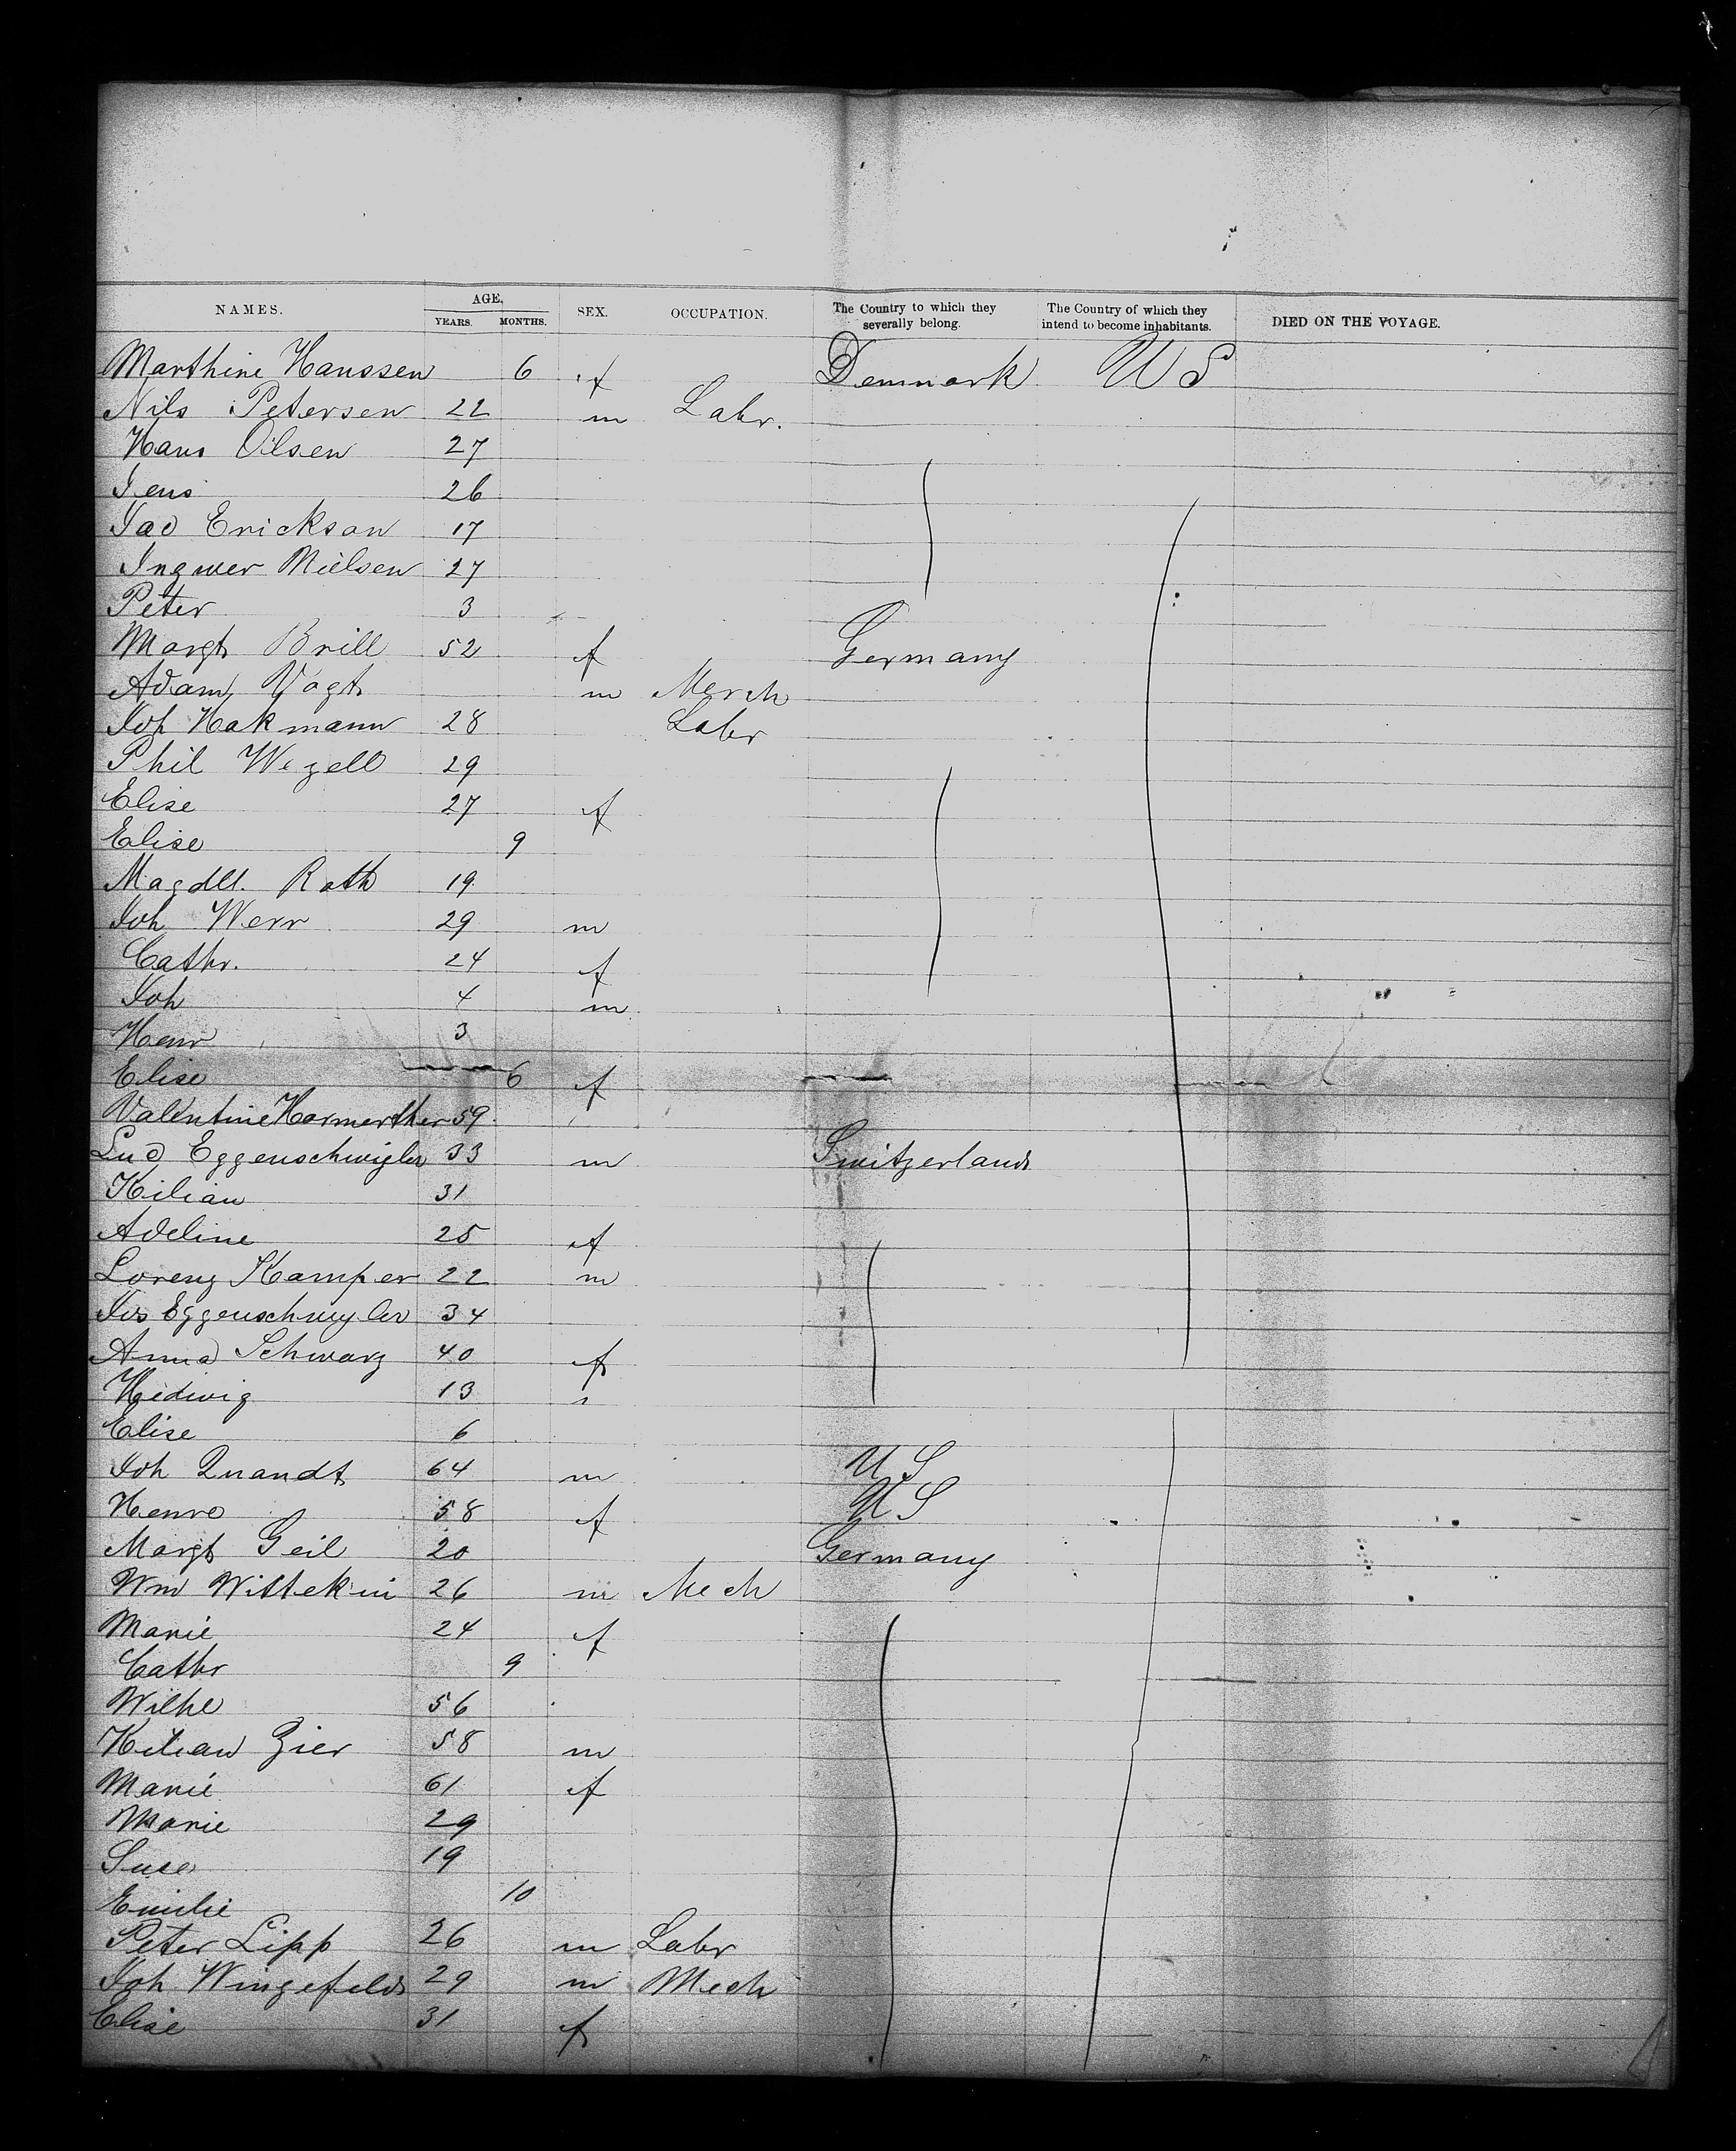 NAMES. AGE, YEARS. MONTHS. SEX. OCCUPATION. The Country to which they severally belong. The Country of which they intend to become inhabitants. DIED ON THE VOYAGE.
Marthine Hanssen 6 f Denmark U S
Nils Petersen 22 m Labr.
Hans Olsen 27
Jens 26
Jac Erickson 17
Ingwer Nielsen 27
Peter 3
Margt Brill 52 f Germany
Adam Vogt m Merch
Joh Hakmann 28 Labr
Phil Wezell 29
Elise 27 f
Elise 9
Magdll. Roth 19
Joh Werr 29 m
Cathr. 24 f
Joh 4 m
Henr 3
Elise 6 f
Valentine Harmerther 59
Lud Eggenschwigler 33 m Switzerland
Kilian 31
Adeline 25 f
Lorenz Kamper 22 m
Jos Eggenschwyler 34
Anna Schwarz 40 f
Hedwig 13
Elise 6
Joh Quandt 64 m U S
Henre 58 f U S
Margt Geil 20 Germany
Wm Wittekin 26 m Mech
Marie 24 f
Cathr 9
Wilhe 56
Kilian Zier 58 m
Marie 61 f
Marie 29
Suse 19
Emilie 10
Peter Lipp 26 m Labr
Joh Wingefeld 29 m Mech
Elise 31 f